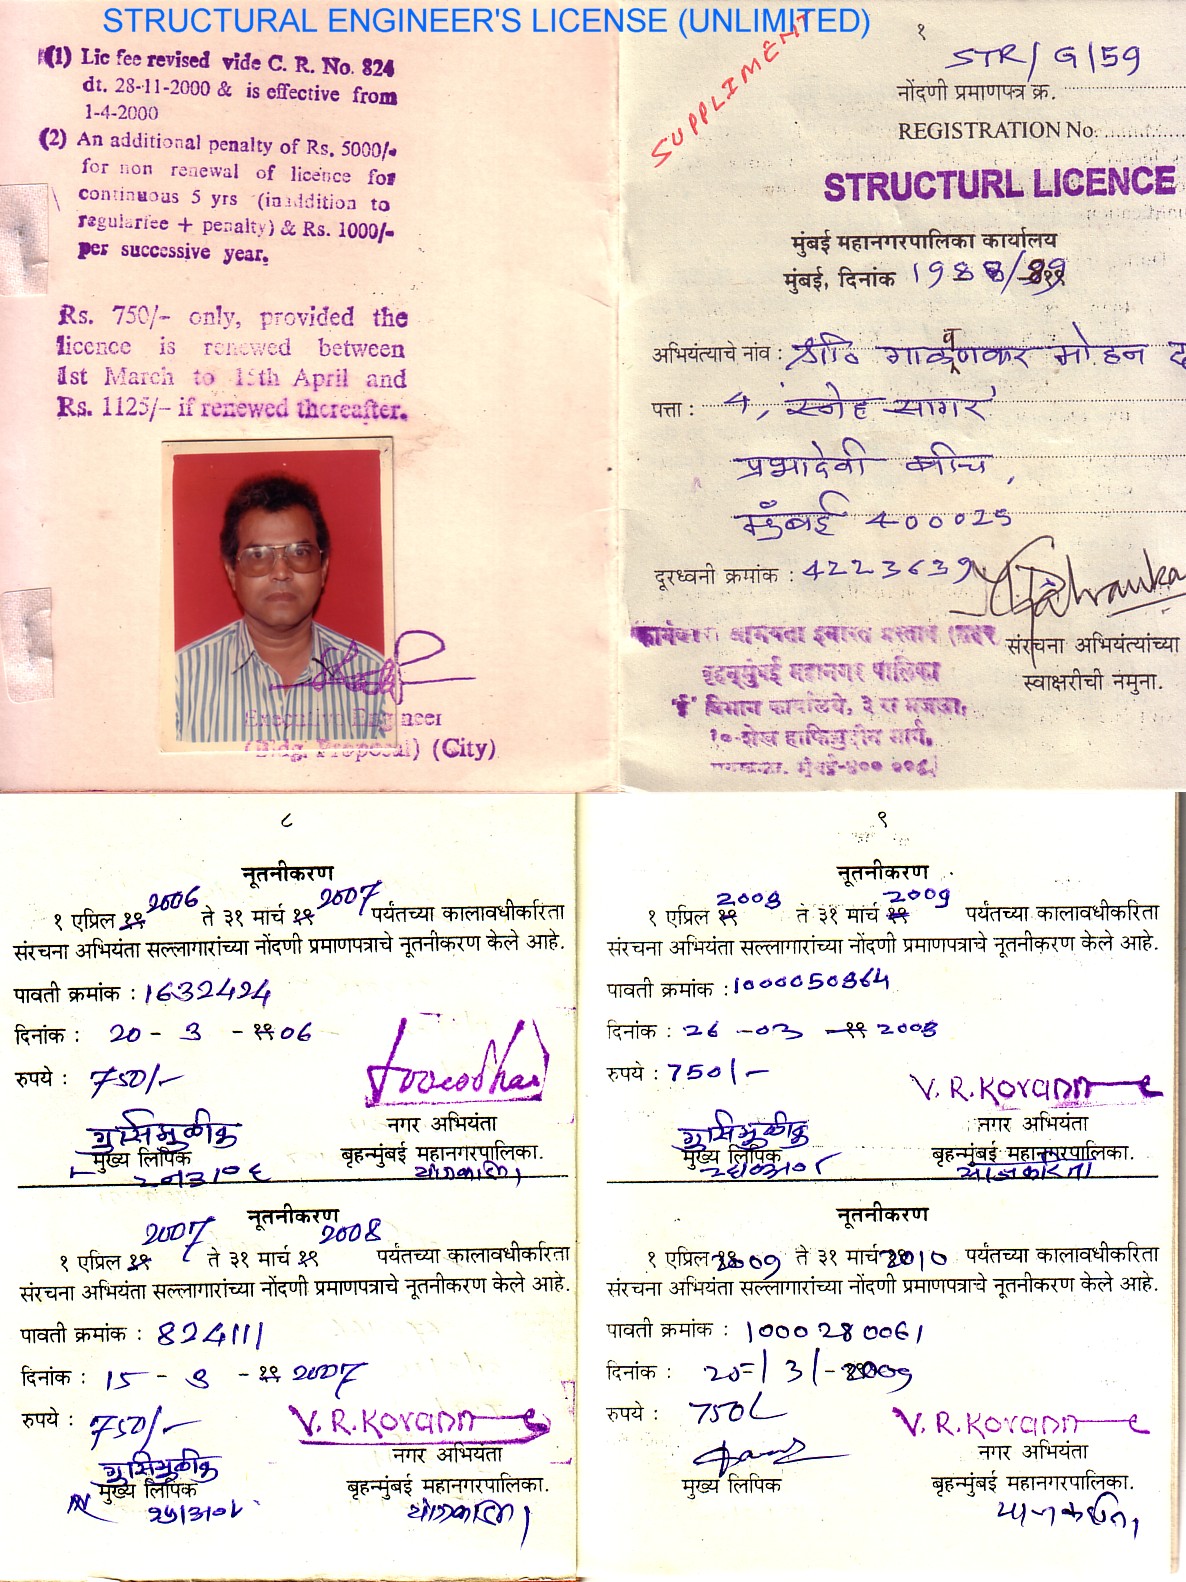 STRUCTURAL ENGINEER'S LICENSE (UNLIMITED)
(1) Lic fee revised vide C. R. No. 824
dt. 28-11-2000 & is effective from
1-4-2000
(2) An additional penalty of Rs. 5000/-
for non renewal of licence for
continuous 5 yrs (inaddition to
regularfee + penalty) & Rs. 1000/-
per successive year.
Rs. 750/- only, provided the
licence is renewed between
1st March to 15th April and
Rs. 1125/- if renewed thereafter.
Executive Engineer
(Bldg. Proposal) (City)
SUPPLIMENT
१
STR/G/59
नोंदणी प्रमाणपत्र क्र.
REGISTRATION No.
STRUCTURL LICENCE
मुंबई महानगरपालिका कार्यालय
मुंबई, दिनांक 1988/89
अभियंत्याचे नांव : श्री मोहन
पत्ता : 4, 'स्नेह सागर'
प्रभादेवी बीच,
मुंबई 400025
दूरध्वनी क्रमांक : 4223639
संरचना अभियंत्यांच्या
स्वाक्षरीची नमुना.
कार्यकारी अभियंता इमारत प्रस्ताव (शहर
बृहन्मुंबई महानगर पालिका
'ई' विभाग कार्यालय, ३ रा मजला,
१०-शेख हाफिझुद्दीन मार्ग,
मुंबई-४०० ००८
८
नूतनीकरण
१ एप्रिल १९ 2006 ते ३१ मार्च १९ 2007 पर्यंतच्या कालावधीकरिता
संरचना अभियंता सल्लागारांच्या नोंदणी प्रमाणपत्राचे नूतनीकरण केले आहे.
पावती क्रमांक : 1632424
दिनांक : 20 - 3 - १९ 06
रुपये : 750/-
नगर अभियंता
मुख्य लिपिक
बृहन्मुंबई महानगरपालिका.
नूतनीकरण
१ एप्रिल १९ 2007 ते ३१ मार्च १९ 2008 पर्यंतच्या कालावधीकरिता
संरचना अभियंता सल्लागारांच्या नोंदणी प्रमाणपत्राचे नूतनीकरण केले आहे.
पावती क्रमांक : 824111
दिनांक : 15 - 3 - १९ 2007
रुपये : 750/-
V. R. Korann
नगर अभियंता
मुख्य लिपिक
बृहन्मुंबई महानगरपालिका.
९
नूतनीकरण
१ एप्रिल १९ 2008 ते ३१ मार्च १९ 2009 पर्यंतच्या कालावधीकरिता
संरचना अभियंता सल्लागारांच्या नोंदणी प्रमाणपत्राचे नूतनीकरण केले आहे.
पावती क्रमांक : 1000050364
दिनांक : 26 - 03 - १९ 2008
रुपये : 750/-
V. R. Korann
नगर अभियंता
मुख्य लिपिक
बृहन्मुंबई महानगरपालिका.
नूतनीकरण
१ एप्रिल 2009 ते ३१ मार्च 2010 पर्यंतच्या कालावधीकरिता
संरचना अभियंता सल्लागारांच्या नोंदणी प्रमाणपत्राचे नूतनीकरण केले आहे.
पावती क्रमांक : 1000280061
दिनांक : 20/3/-2009
रुपये : 750/
V. R. Korann
नगर अभियंता
मुख्य लिपिक
बृहन्मुंबई महानगरपालिका.